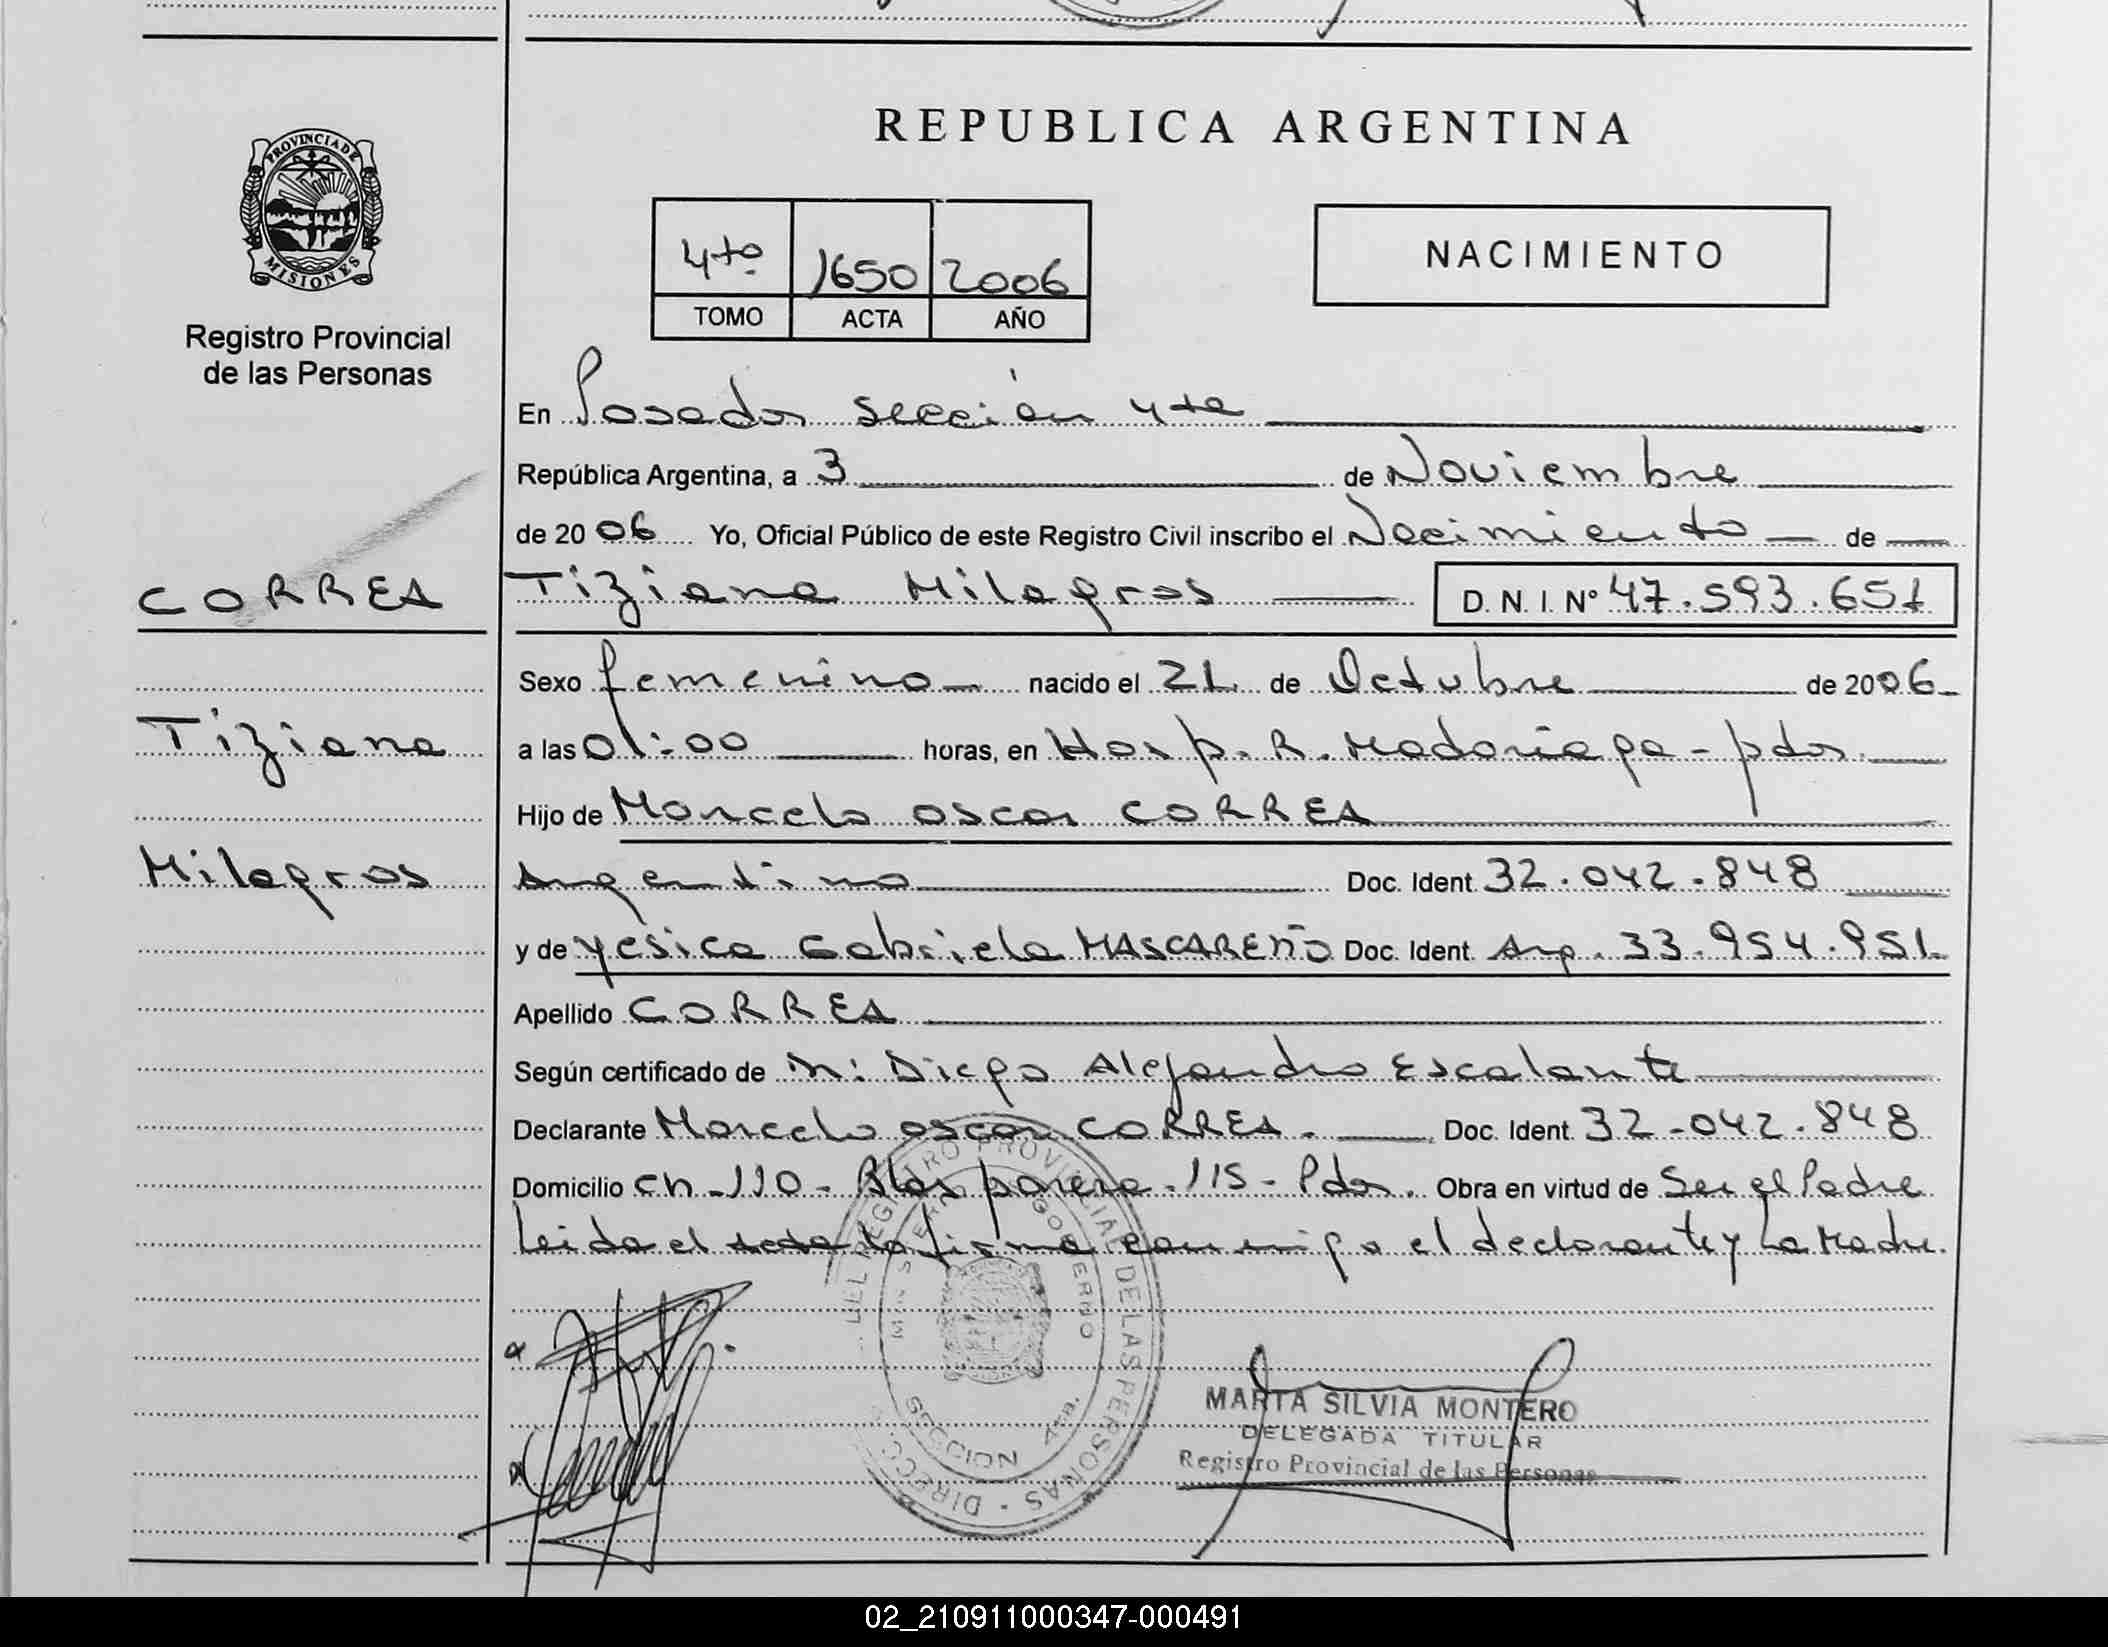 REPUBLICA ARGENTINA
PROVINCIA DE
MISIONES
Registro Provincial
de las Personas
4to 1650 2006
TOMO ACTA AÑO
NACIMIENTO
En Posadas sección 4ta
República Argentina, a 3 de Noviembre
de 2006 Yo, Oficial Público de este Registro Civil inscribo el Nacimiento de
CORREA
Tiziana Milagros D. N. I. N° 47.593.651
Sexo femenino nacido el 21 de Octubre de 2006
Tiziana
a las 01:00 horas, en Hosp. R. Madariaga - pdas.
Hijo de Marcelo Oscar CORREA
Milagros
Argentino Doc. Ident. 32.042.848
y de Yesica Gabriela MASCAREÑO Doc. Ident. Arg. 33.954.951
Apellido CORREA
Según certificado de Diego Alejandro Escalante
Declarante Marcelo Oscar CORREA. Doc. Ident. 32.042.848
Domicilio ch - 110 - Blas parera - 115 - Pdas. Obra en virtud de Ser el Padre
Leida el acta la firma conmigo el declarante y La Madre.
DIRECC. DEL REGISTRO PROVINCIAL DE LAS PERSONAS
GOBIERNO
SECCION 4ta.
MARTA SILVIA MONTERO
DELEGADA TITULAR
Registro Provincial de las Personas
02_210911000347-000491